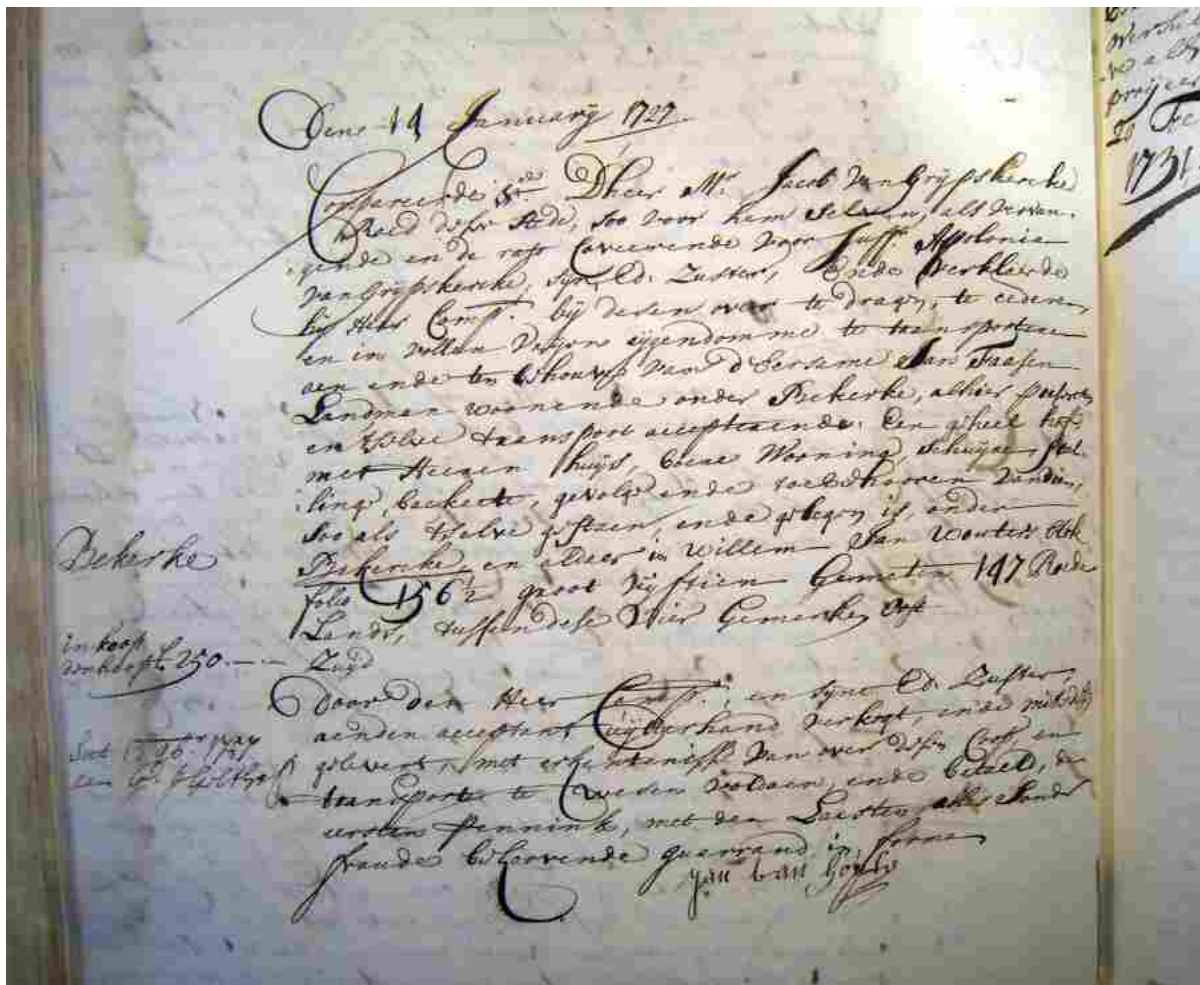 Dens 14 January 1727
Compareerde D'heer Mr. Jacob Van Grijpskercke
Raed deser Stede, soo voor hem Selven, als vervan-
gende en de rato Caveerende voor Juffr. Appolonia
Van Grijpskercke, sijn Ed. Zuster, Ende verklerde
hij Heer Comp.t bij desen over te dragen, te cederen,
en in vollen vrijen eijgendomme te transporteren
aen ende ten behouve van d'Eersame Jan Faasen
Landman woonende onder Bekerke, alhier present
en t'selve transport accepteerende. Een geheel hof
met Heeren huijs, boere Wooning, Schuijre, stel-
ling, beckete, gevolge ende toebehooren vandien,
Soo als t'selve gestaen, ende gelegen is, onder
Bekercke en elders in Willem Jan Wouters blok
folio 156½ groot vijftien Gemeten 147 Roede
Lands, tussen dese vier Gemerken Oost
Zuijd
Door den Heer Comp.t, en sijne Ed. Zuster,
aen den acceptant uijtterhand verkogt, ende mits desen
gelevert, met erkentenisse van over desen Coop en
transporte te wesen voldaen, ende betaelt, de
eersten pennink, met den Laesten, alles sonder
fraude beloovende guarrand in forma
Jan van
Bekerke
in koop
verkogt £ 250.–.–
1727
over
20 Fe
1731